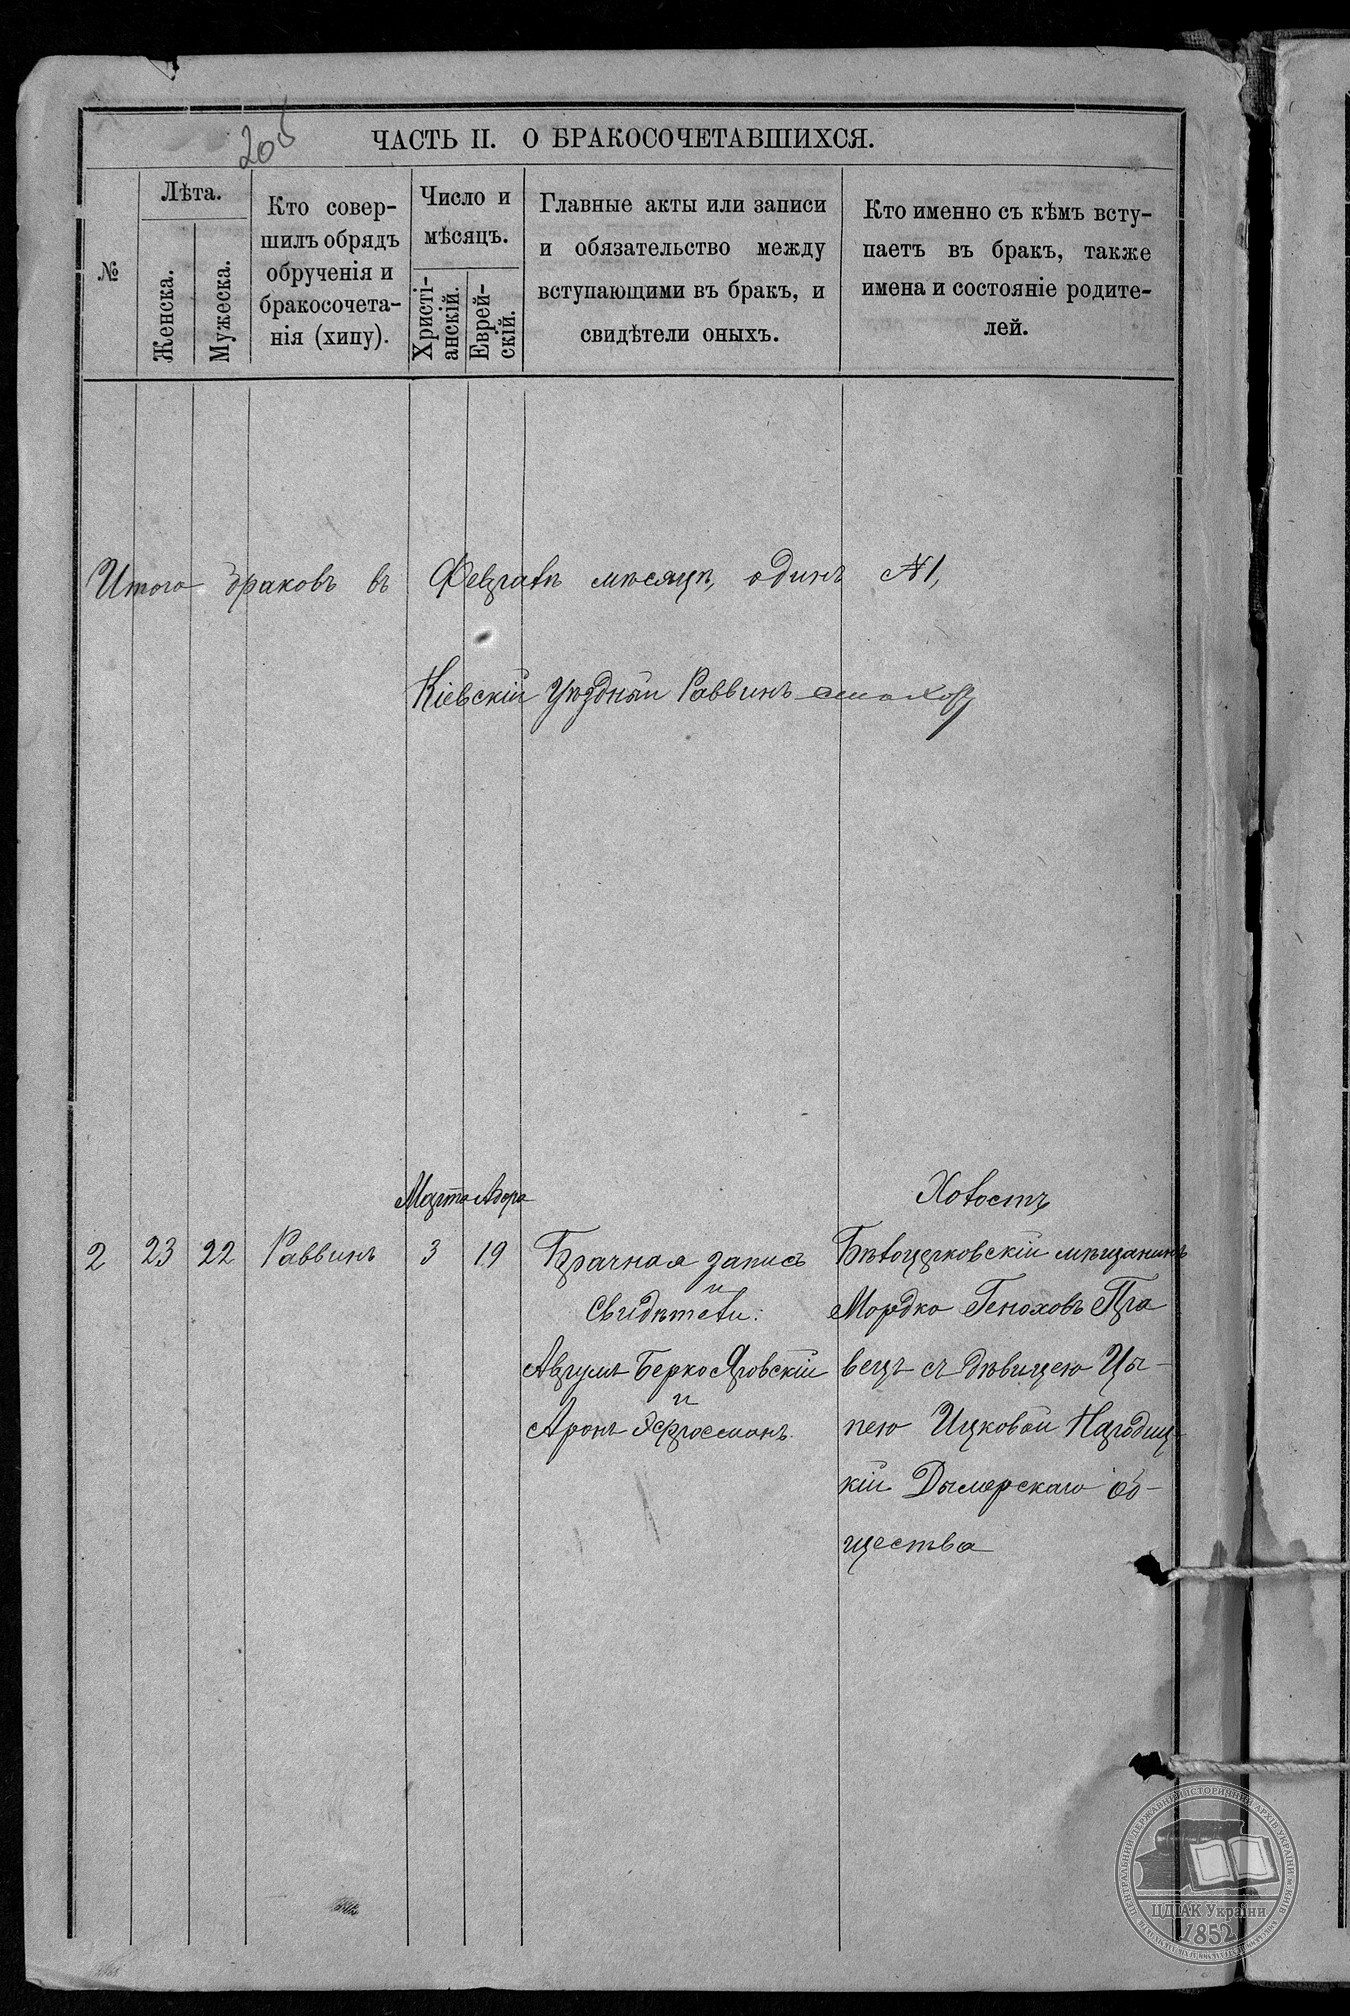 205
ЧАСТЬ II. О БРАКОСОЧЕТАВШИХСЯ.
№
Лѣта.
Женска.
Мужеска.
Кто совер-
шилъ обрядъ
обрученія и
бракосочета-
нія (хипу).
Число и
мѣсяцъ.
Христі-
анскій.
Еврей-
скій.
Главные акты или записи
и обязательство между
вступающими въ бракъ, и
свидѣтели оныхъ.
Кто именно съ кѣмъ всту-
паетъ въ бракъ, также
имена и состояніе родите-
лей.
Итого браковъ въ Февралѣ мѣсяцѣ, одинъ №1,
Кіевскій Уѣздный Раввинъ
Марта Адара
Хвость
2 23 22 Раввинъ 3 19
Брачная запись
и
Свидѣтели:
Аврумъ Берко Яровскій
и
Аронъ Эфросманъ.
Бѣлоцерковскій мѣщанинъ
Мордко Геноховъ Пра
вецъ съ дѣвицею Цы-
пею Ицковой Народиц-
кій Дымерскаго об-
щества
ЦЕНТРАЛЬНИЙ ДЕРЖАВНИЙ ІСТОРИЧНИЙ АРХІВ УКРАЇНИ М. КИЇВ
ЦДІАК України
1852